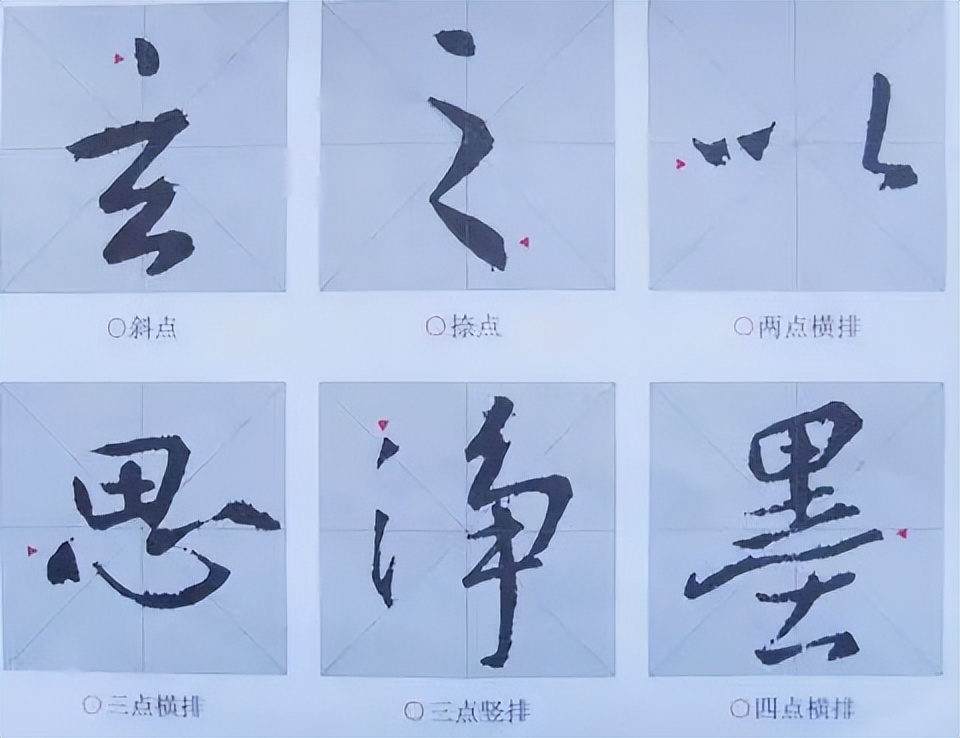 玄 之 以
○斜点 ○捺点 ○两点横排
思 净 墨
○三点横排 ○三点竖排 ○四点横排